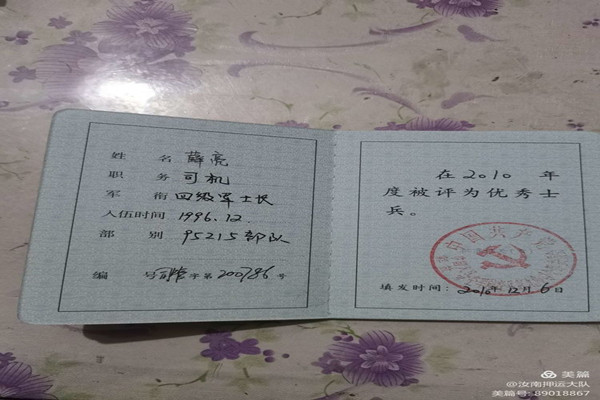 姓 名 薛亮
职 务 司机
军 衔 四级军士长
入伍时间 1996.12.
部 别 95215部队
编 号 字第200786号
在2010年
度被评为优秀士
兵。
中国共产党
填发时间：2010年12月6日
美篇
@汝南押运大队
美篇号：89018867